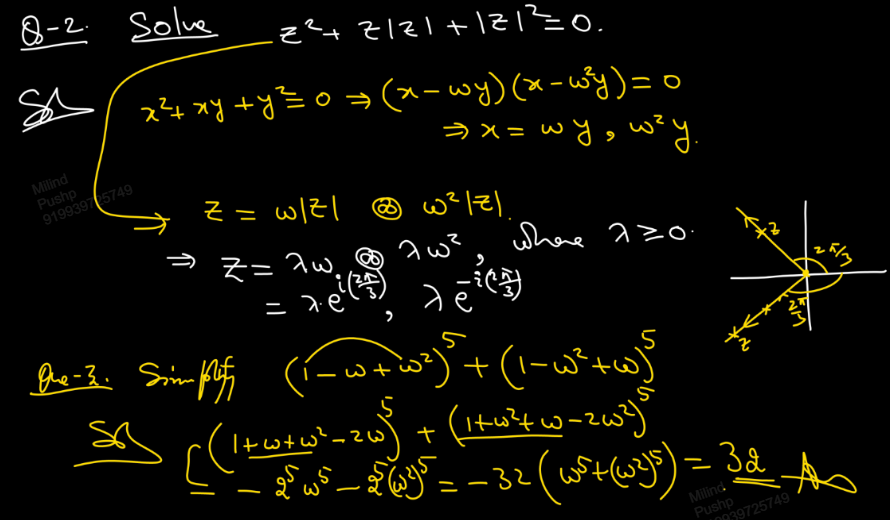 Q-2. Solve z² + z|z| + |z|² = 0.
Sol x² + xy + y² = 0 ⇒ (x - ωy)(x - ω²y) = 0
⇒ x = ωy, ω²y.
Milind
Pushp
919939725749
→ z = ω|z| or ω²|z|.
⇒ z = λω or λω², where λ ≥ 0.
= λ e^{i(2π/3)}, λ e^{-i(2π/3)}
z
2π/3
2π/3
z
Que-3. Simplify (1 - ω + ω²)⁵ + (1 - ω² + ω)⁵
Sol (1 + ω + ω² - 2ω)⁵ + (1 + ω² + ω - 2ω²)⁵
- 2⁵ω⁵ - 2⁵(ω²)⁵ = -32 (ω⁵ + (ω²)⁵) = 32 Ans
Milind
Pushp
919939725749